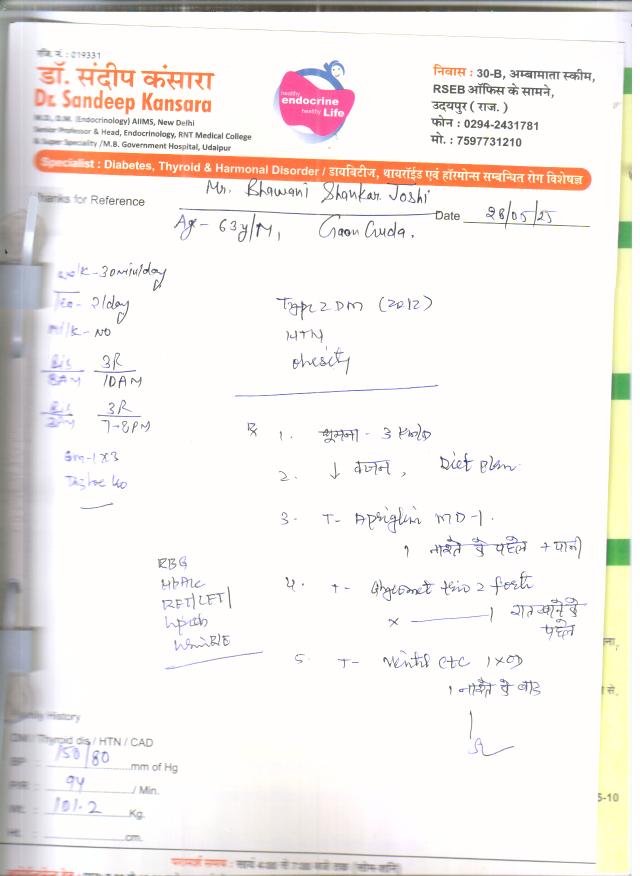 रजि. नं. : 019331
डॉ. संदीप कंसारा
Dr. Sandeep Kansara
M.D., D.M. (Endocrinology) AIIMS, New Delhi
Senior Professor & Head, Endocrinology, RNT Medical College
& Super Speciality /M.B. Government Hospital, Udaipur
healthy
endocrine
healthy Life
निवास : 30-B, अम्बामाता स्कीम,
RSEB ऑफिस के सामने,
उदयपुर ( राज. )
फोन : 0294-2431781
मो. : 7597731210
Specialist : Diabetes, Thyroid & Harmonal Disorder / डायबिटीज, थायरॉईड एवं हॉरमोन्स सम्बन्धित रोग विशेषज्ञ
hanks for Reference
Mr. Bhawani Shankar Joshi
Date 28/05/25
Age - 63y/M, Gaon Guda.
- 30min/day
Tea - 2/day
Milk - NO
Bis 3R
8AM 10AM
Bis 3R
7-8PM
Type 2 DM (2012)
HTN
obesity
Rx 1. घूमना - 3 Km/D
2. ↓ वजन, Diet plan
3. T- MD-1
1 नाश्ते से पहले + पानी
RBG
HbA1c
RFT/LFT/
Lipids
4. T- Glycomet trio 2 forte
x 1 रात खाने से
पहले
5. T- 1 x OD
1 नाश्ते के बाद
Family History
DM / Thyroid dis / HTN / CAD
BP : 150/80 mm of Hg
94 / Min.
Wt. : 101.2 Kg.
Ht. : cm.
5-10
परामर्श समय : सायं 4:00 से 7:00 बजे तक (सोम-शनि)